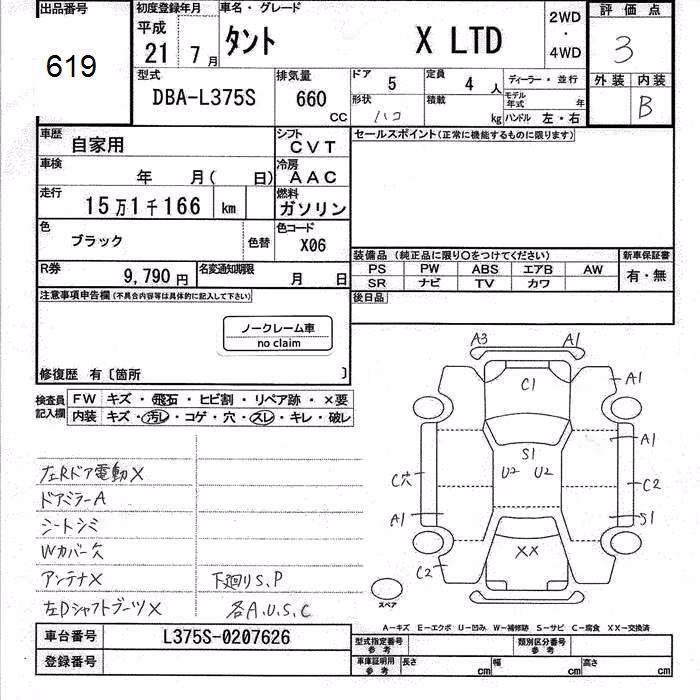 出品番号
619
初度登録年月
平成
21 7月
車名・グレード
タント X LTD
2WD
・
4WD
評価点
3
外装 内装
B
型式
DBA-L375S
排気量
660
CC
ドア
5
定員
4 人
ディーラー・並行
形状
ハコ
積載
kg
モデル年式 年
ハンドル 左・右
車歴
自家用
シフト
CVT
車検
年 月( 日)
冷房
AAC
走行
15万1千166 km
燃料
ガソリン
色
ブラック
色替
色コード
X06
R券
9,790円
名変通知期限
月 日
セールスポイント(正常に機能するものに限ります)
装備品 (純正品に限り○をつけてください)
新車保証書
PS PW ABS エアB AW
有・無
SR ナビ TV カワ
後日品
注意事項申告欄(不具合内容等は具体的に記入して下さい)
ノークレーム車
no claim
修復歴 有〔箇所 〕
検査員記入欄
FW キズ・飛石・ヒビ割・リペア跡・×要
内装 キズ・汚レ・コゲ・穴・スレ・キレ・破レ
左Rドア電動X
ドアミラーA
シートシミ
Wカバー欠
アンテナX
下廻りS.P
左DシャフトブーツX
各A.U.S.C
A3 A1
C1
A1
A1
S1
U2 U2
C穴
C2
A1
S1
XX
C2
スペア
A−キズ E−エクボ U−凹み W−補修跡 S−サビ C−腐食 XX−交換済
車台番号 L375S-0207626
登録番号
型式指定番号
参考
類別区分番号
参考
車庫証明用
参考
長さ cm 幅 cm 高さ cm